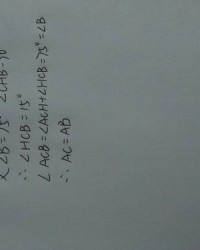 又∠B=75° ∠CHB=90°
∴ ∠HCB=15°
∠ACB=∠ACH+∠HCB=75°=∠B
∴ AC=AB